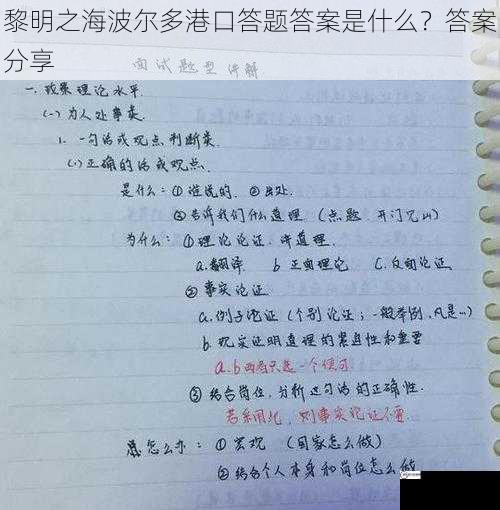 黎明之海波尔多港口答题答案是什么？答案
分享
面试题型详解
一. 政策理论水平.
(一) 为人处事类.
1. 一句话或观点判断类.
(1) 正确的话或观点.
是什么：① 谁说的. ② 出处.
③ 告诉我们什么道理（点题 开门见山）
为什么：① 理论论证. 讲道理.
a. 翻译 b 正面理论 c. 反面论证
② 事实论证
a. 例子论证（个别论证；一般举例. 凡是…）
b. 现实证明道理的紧迫性和重要
a. b 两者只选一个便可
③ 结合岗位, 分析这句话的正确性.
若采用此, 则事实论证不要.
怎么办：① 宏观（国家怎么做）
② 结合个人本身和岗位怎么做